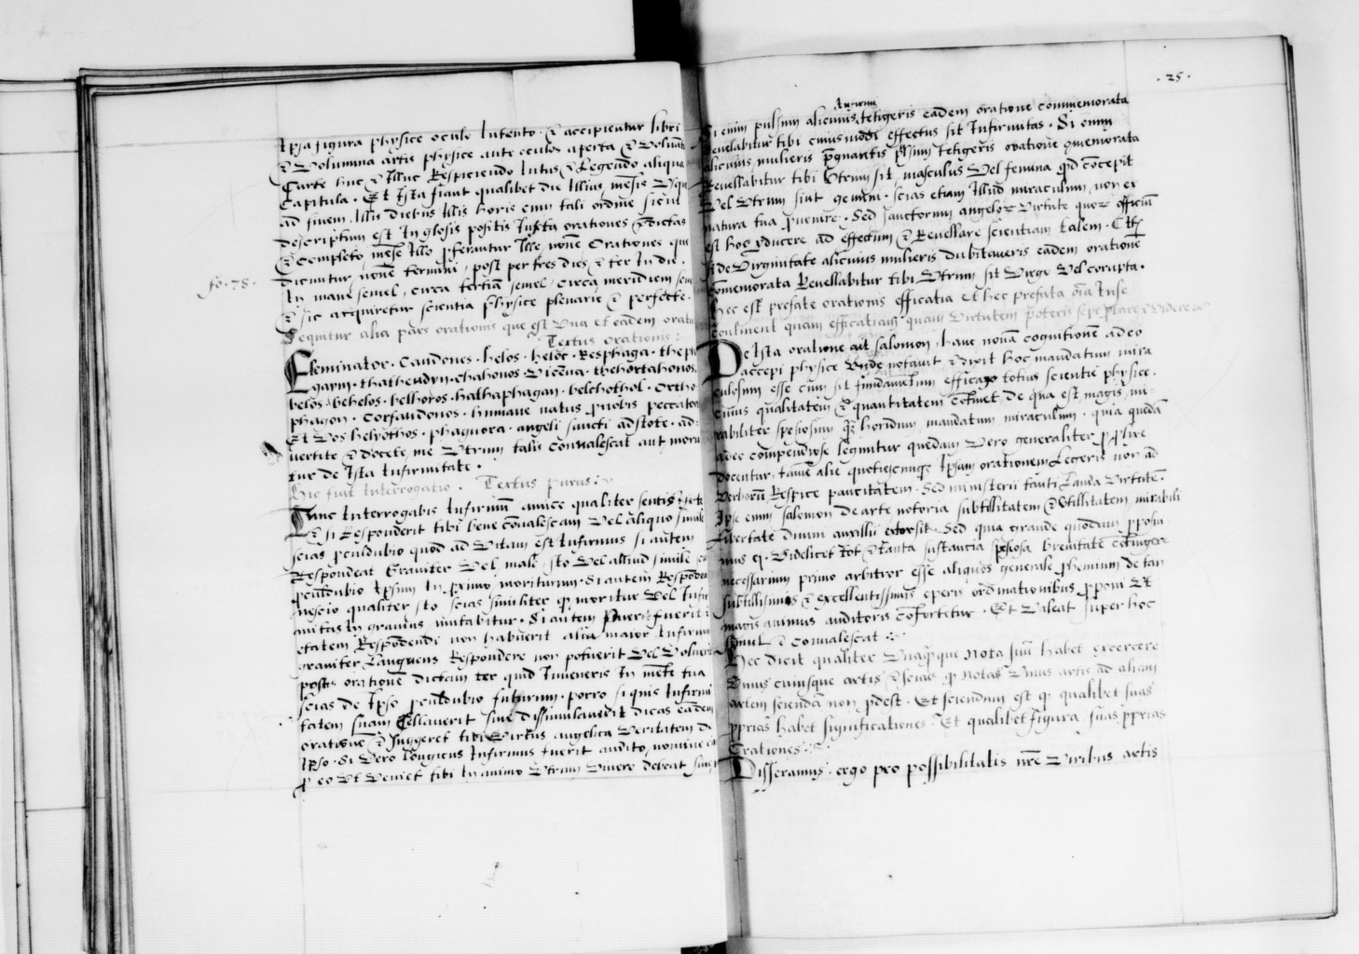 Ipsa figura physice oculo Intento · & accipientur libri
& Volumina artis physice ante oculos aperta & Voluantur
Carte huc & Illuc Respiciendo Intus & Legendo aliqua
Capitula · Et Ista fiant qualibet die Illius mēsis Vsque
ad finem. Illis diebus Illis horis cum tali ordine sicut
descriptum est In glosis positis Iuxta orationes p̄dictas
& Completo mēse Illo proferantur Ille nouē Orationes que
dicuntur nouē termini, post per tres dies & ter In die ·
fo · 78 ·
In mane semel, circa tertiā semel, circa meridiem semel
& sic acquiretur scientia physice plenarie & perfecte ·
Sequitur alia pars orationis que est Vna et eadem oratio
Textus orationis :
Eleminator · Caudones · helos · heloc · Resphaga · the
gaym · thathendyn · chahonos · Vicēna · thehortahonos
belos · Vehelos · belhoros · hathaphagan · belchothol · Ortho
phagon · Corfandonos · humane natus pro nobis peccatoribus
Et Vos helyothos · phagnora · angeli sancti adstote · ad
uertite & docete me Vtrum talis Conualescat aut moria
tur de Ista Infirmitate ·
Hic fiat Interrogatio · Textus purus :
Tunc Interrogabis Infirmū amice qualiter sentis te
& si Responderit tibi bene Cōualescam Vel aliquo simile
scias proculdubio quod ad Vitam est Infirmus si autem
Respondeat Grauiter Vel male sto Vel aliud simile
proculdubio Ipsum In proximo moriturum · Si autem Respondeat
nescio qualiter sto scias similiter quod moritur Vel Infir
mitas In grauius mutabitur · Si autem puer fuerit
etatem Respōdendi non habuerit aliā maior Infirmus
grauiter Languens Respondere non potuerit Vel Voluerit
postq̄ orationē dictam ter quid Inueneris In mēte tua
scias de Ipso proculdubio futurum · porro si quis Infirmi
tatem suam Celauerit siue dissimulauerit dicas eadem
orationē & suggeret tibi Virtus angelica Veritatem de
Ipso · Si Vero Longius Infirmus fuerit audito nomine
pro eo Vt Veniet tibi In animo Vtrum Viuere debeat siue
· 25 ·
Infirmi
Si enim pulsum alicuius tetigeris eadem oratione commemorata
Reuelabitur tibi cuiusmodi effectus sit Infirmitas · Si enim
alicuius mulieris pregnantis pulsum tetigeris oratione commemorata
Reuellabitur tibi Vtrum sit, masculus Vel femina quod cōcepit
Vel Vtrum sint gemini · scias etiam Illud miraculum, non ex
natura tua prouenire · Sed sanctorum angelorum Virtute quorum officium
est hoc perducere ad effectum & Reuellare scientiam talem · Et si
si de Virginitate alicuius mulieris dubitaueris eadem oratione
Cōmemorata Reuellabitur tibi Vtrum sit Virgo Vel corupta ·
Hec est prefate orationis efficatia et hec prefata orā Inse
continent quam efficatiam quam Virtutem poteris sepe
De Ista oratione ait salomon · hanc nouā cognitionem adeo
accepi physice Vnde notauit & dixit hoc mandatum mira
culosum esse cum sit fundamētum efficatio totius scientie physice ·
cuius qualitatem & quantitatem cōtinet de qua est magis mi
rabiliter spetiosum quam horidum mandatum miraculum · quia quedā
adeo compendiose leguntur quedam Vero generaliter prolixe
docentur, tamē alie quotiescumque Ipsam orationem Legeris non ad
Verborū Respice paucitatem · Sed misterii tanti Lauda Virtutē ·
Ipse enim salemon de arte notoria subtillitatem & Vtillitatem mirabili
Libertate diuini auxilii extorsit · Sed quia grande quoddam proposu
imus ei · Videlicet tot & tanta substantia spetiosa breuitate cōtingere
necessarium primo arbitror esse aliquod generale prohemium de tam
subtillissimis & excellentissimis operis ordinationibus proponi Vt
magis animus auditoris cōfortetur · Et Valeat super hoc
simul & Conualescat
Hec dicit qualiter Vnaqueque nota suū habet exercere
Vnius cuiusque artis & scias quod notas Vnius artis ad aliam
artem sciendā non prodest · Et sciendum est quod qualibet suas
proprias habet significationes · Et qualibet figura suas proprias
Orationes ·
Disseramus · ergo pro possibilitatis nr̄e Viribus artis